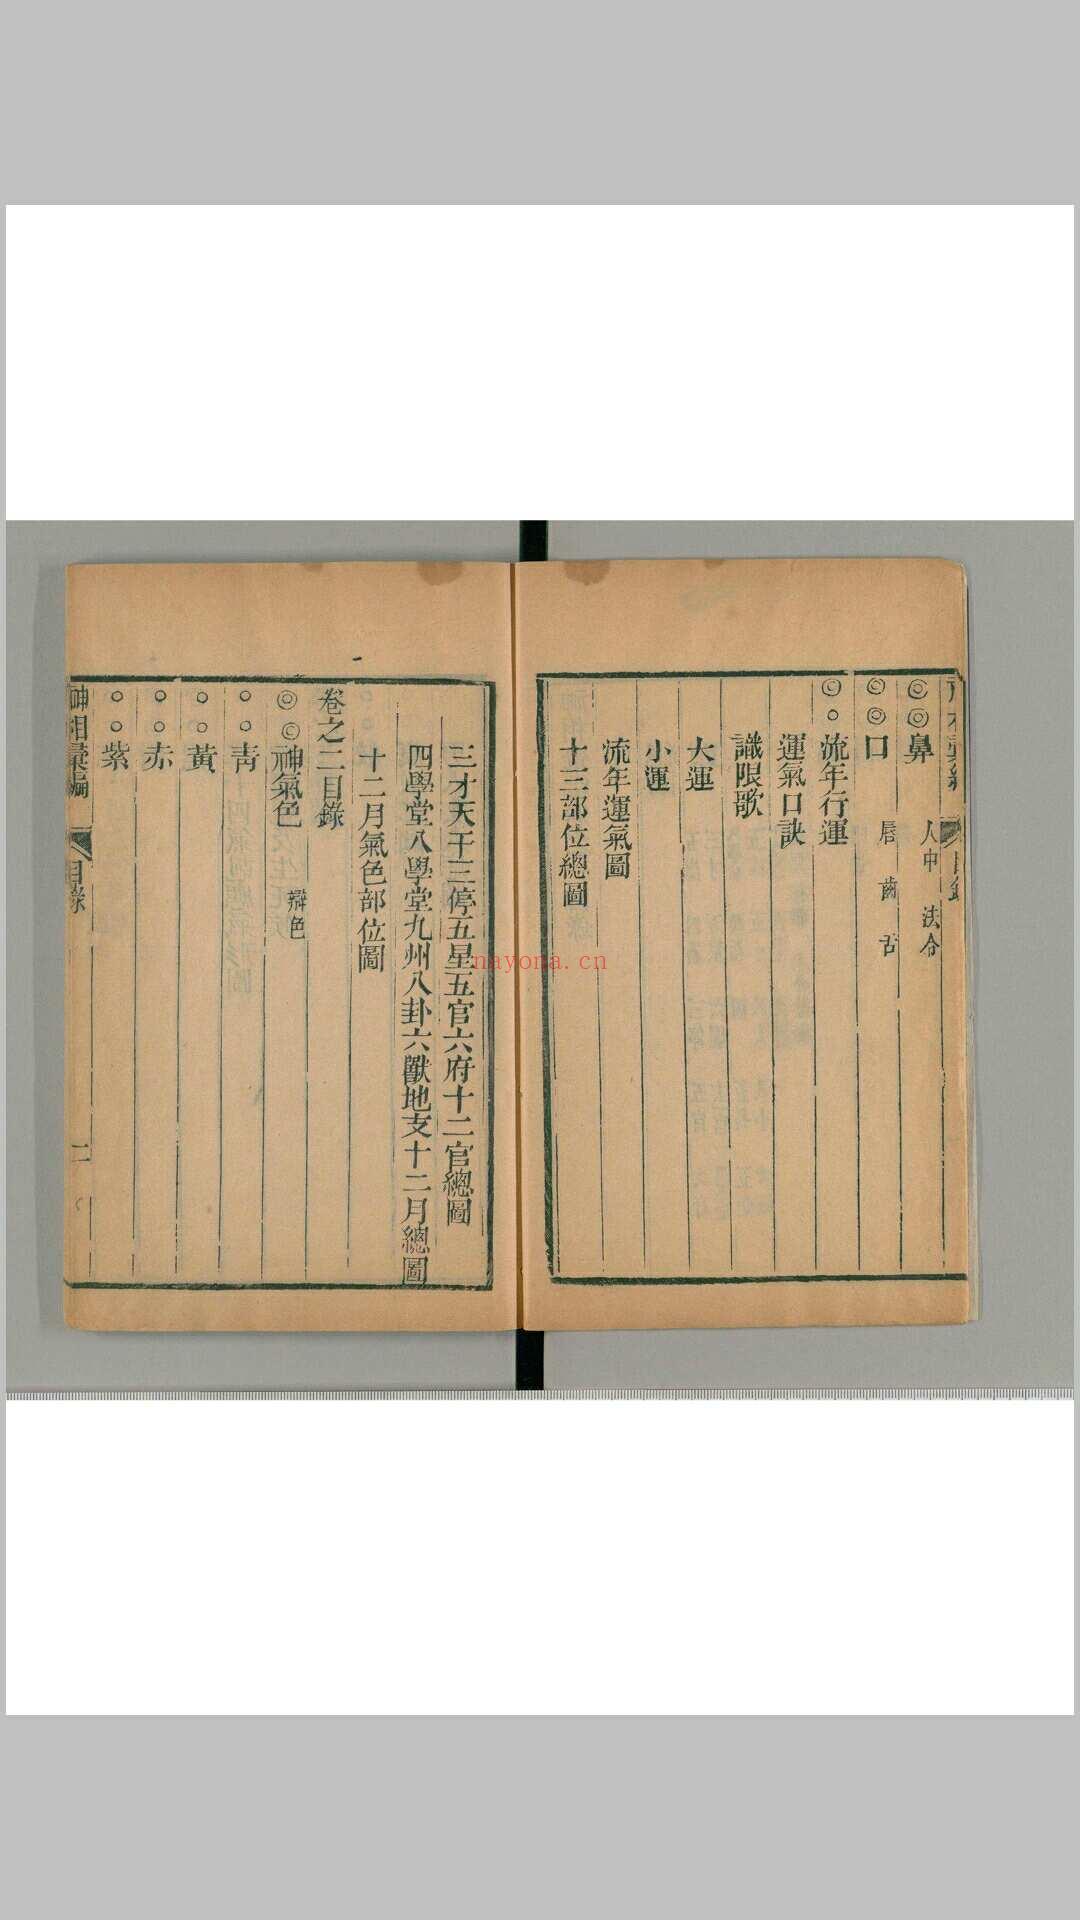 ◎◎鼻 人中 法令
◎◎口 唇 齒 舌
◎○流年行運
運氣口訣
識限歌
大運
小運
流年運氣圖
十三部位總圖
三才天干三停五星五官六府十二官總圖
四學堂八學堂九州八卦六獸地支十二月總圖
十二月氣色部位圖
卷之二目錄
◎◎神氣色 辯色
○○靑
○○黃
○○赤
○○紫
神相彙編 目錄 二
nayona.cn